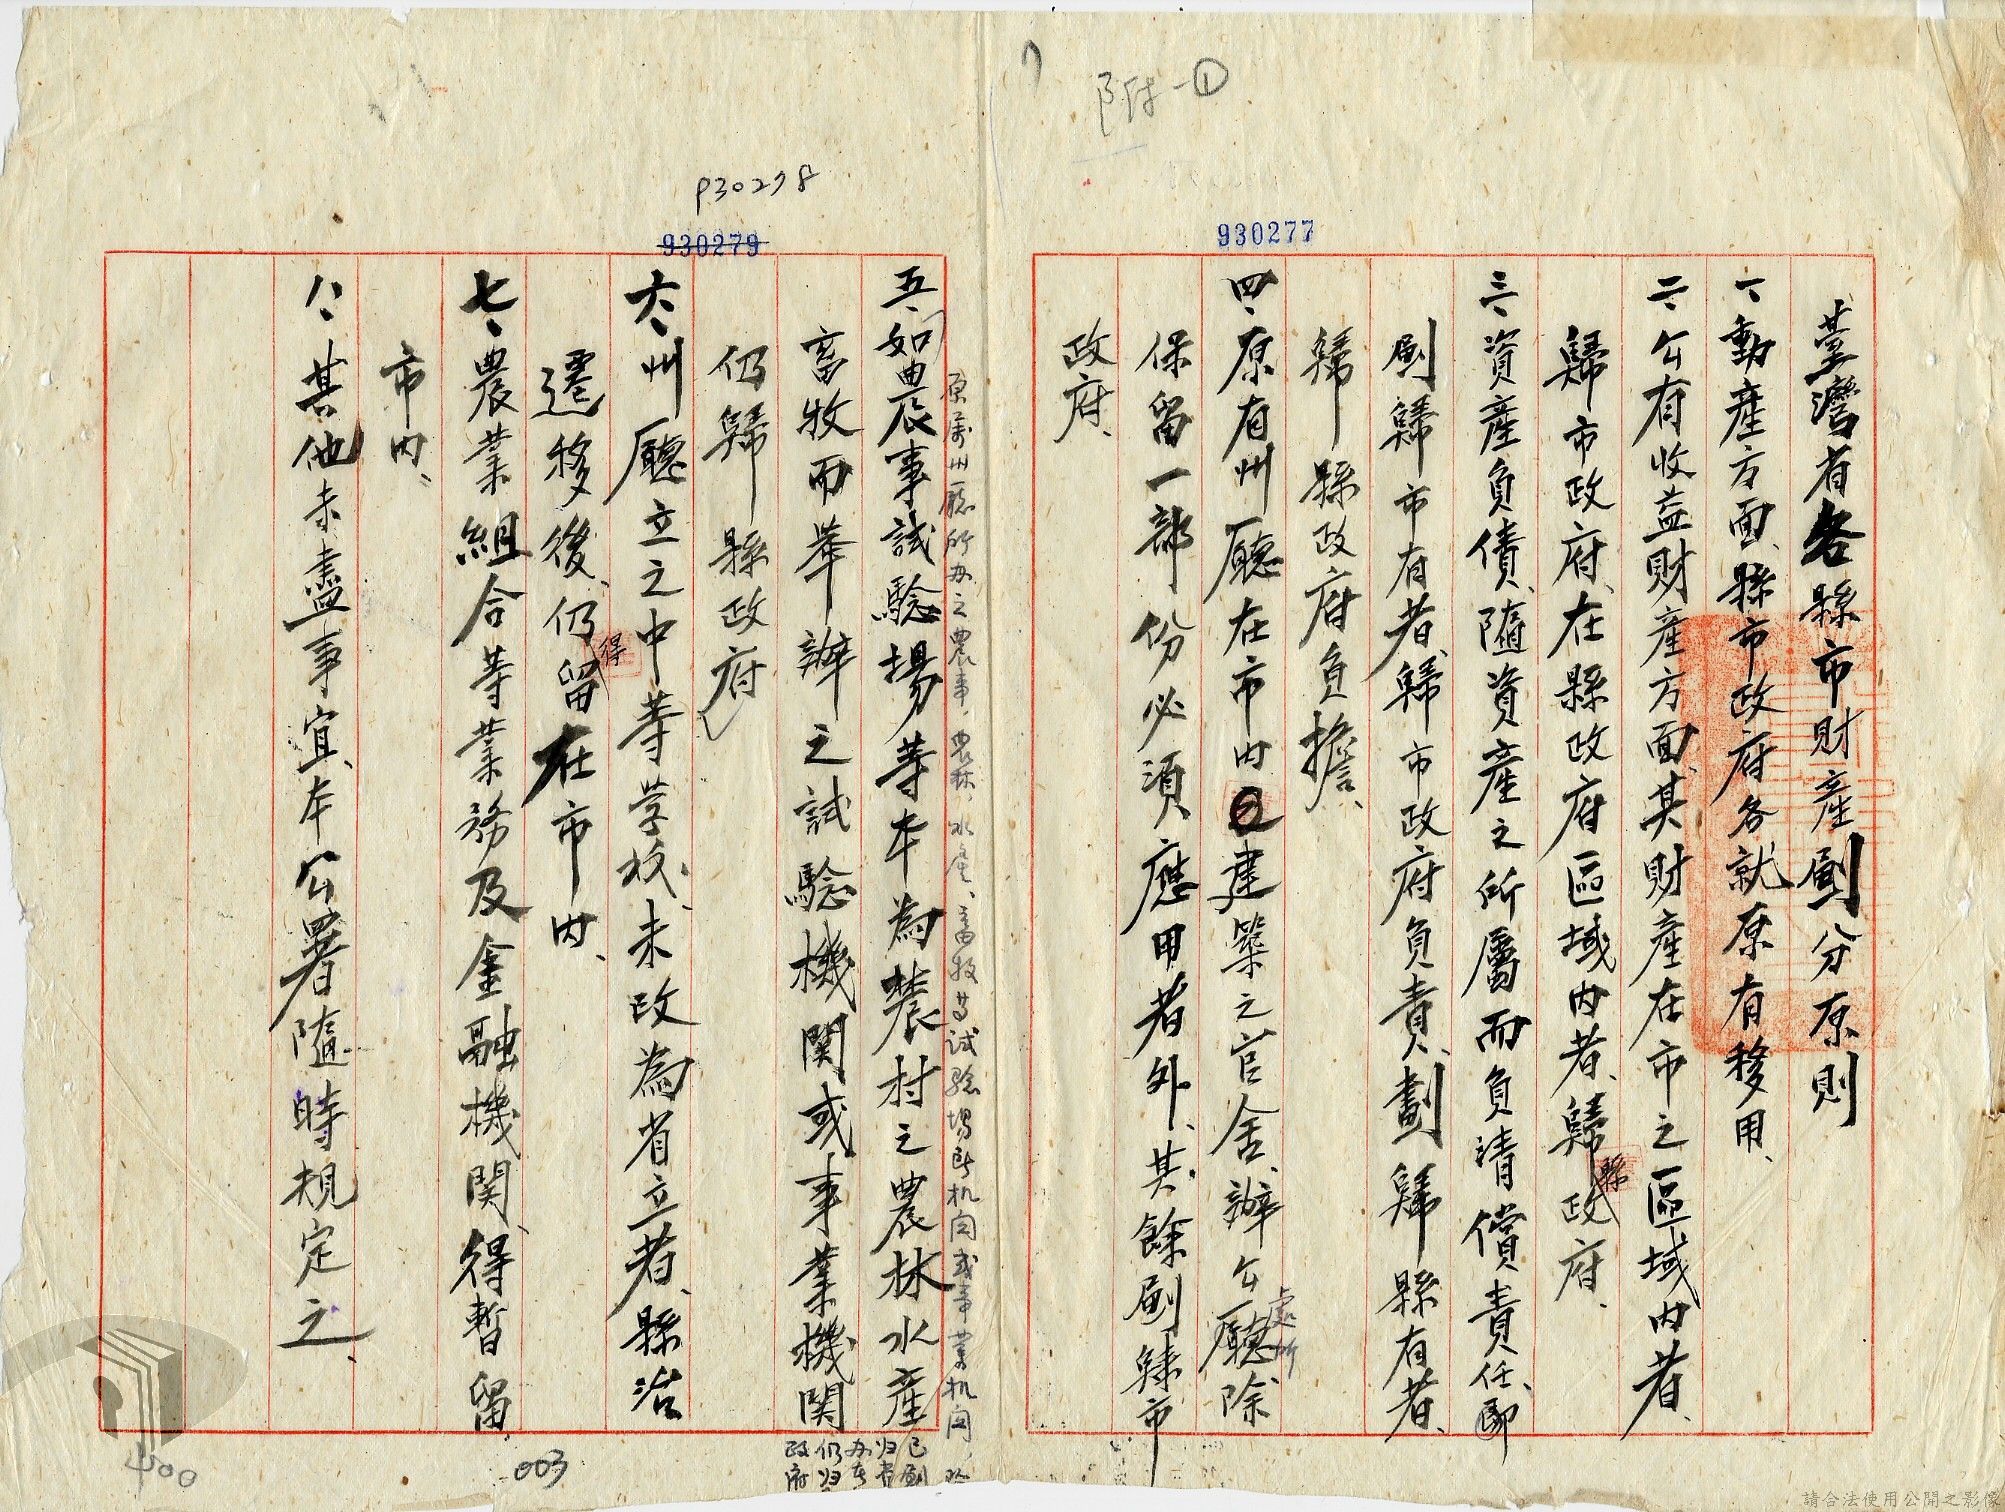 附-①
930277
臺灣省各縣市財產劃分原則
一、動產方面、縣市政府各就原有移用、
二、公有收益財產方面、其財產在市之區域內者、
歸市政府、在縣政府區域內者、歸縣政府、
三、資產負債、隨資產之所屬而負清償責任、即
劃歸市有者、歸市政府負責、劃歸縣有者、
歸縣政府負擔、
四、原有州廳在市內建築之官舍、辦公廳處所、除
保留一部份必須應用者外、其餘劃歸市
政府、
P30278
930279
原屬州廳所办之農事、農林、水產、畜牧等試驗場所机关或事業机关、除
已劃
归省
办者
仍归
政府
五、如農事試驗場等本為農村之農林水產
畜牧而舉辦之試驗機関或事業機関
仍歸縣政府
六、州廳立之中等学校、未改為省立者、縣治
遷移後、仍得留在市內、
七、農業組合等業務及金融機関、得暫留
市內、
八、其他未盡事宜、本公署隨時規定之、
003
400
請合法使用公開之影像